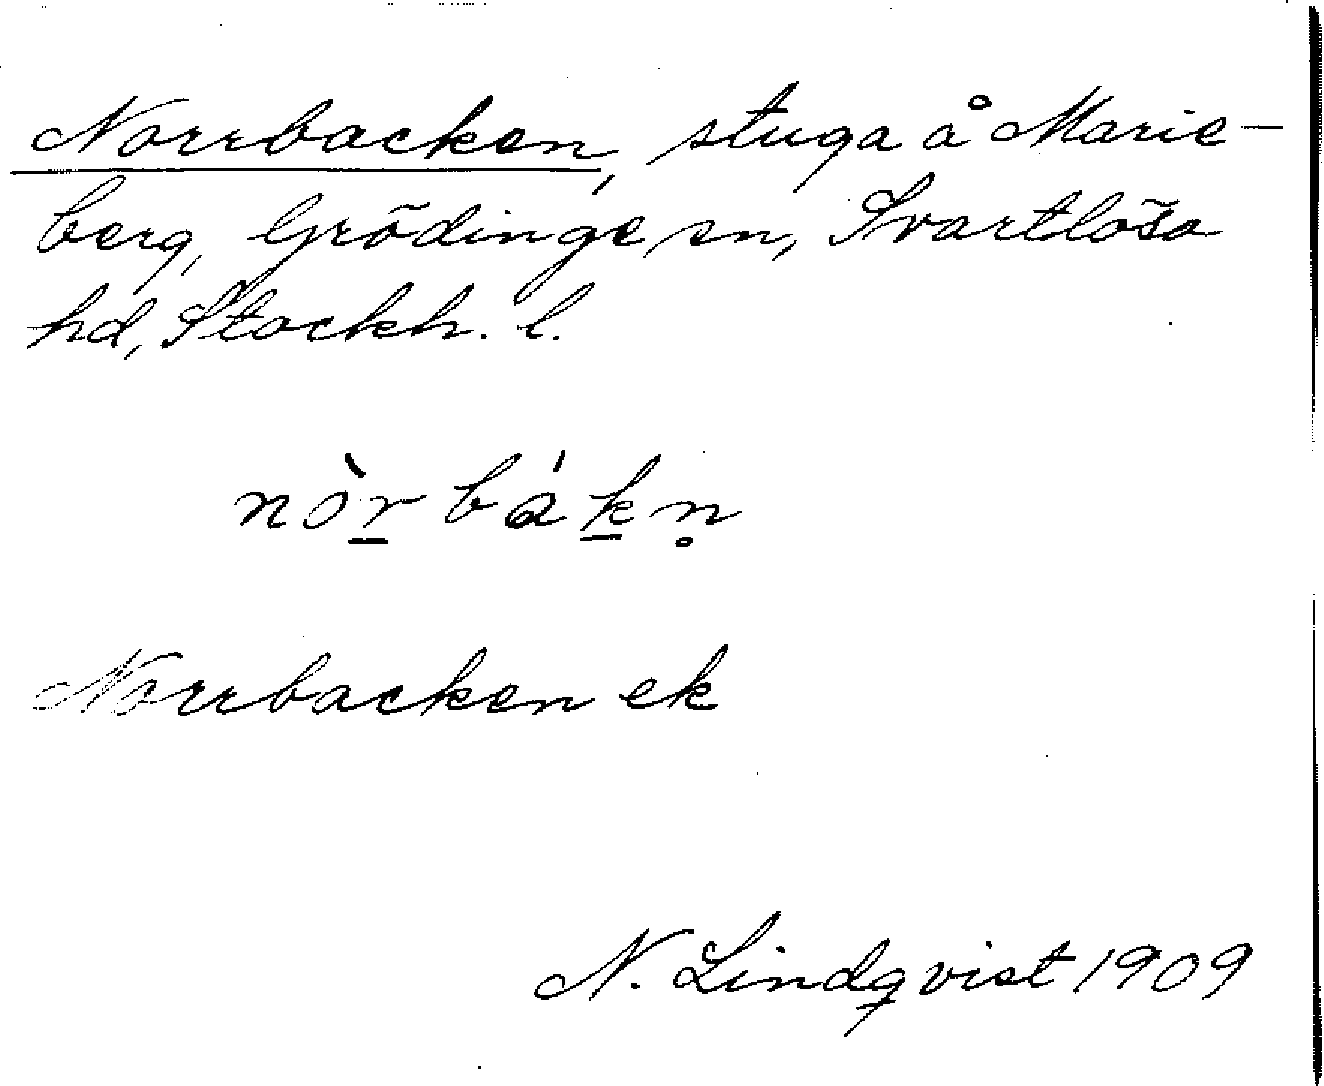 Norrbacken, stuga å Marie-
berg, Grödinge sn, Svartlösa
hd, Stockh. l.
nòr̲bák̲n̥
Norrbacken ek
N. Lindqvist 1909